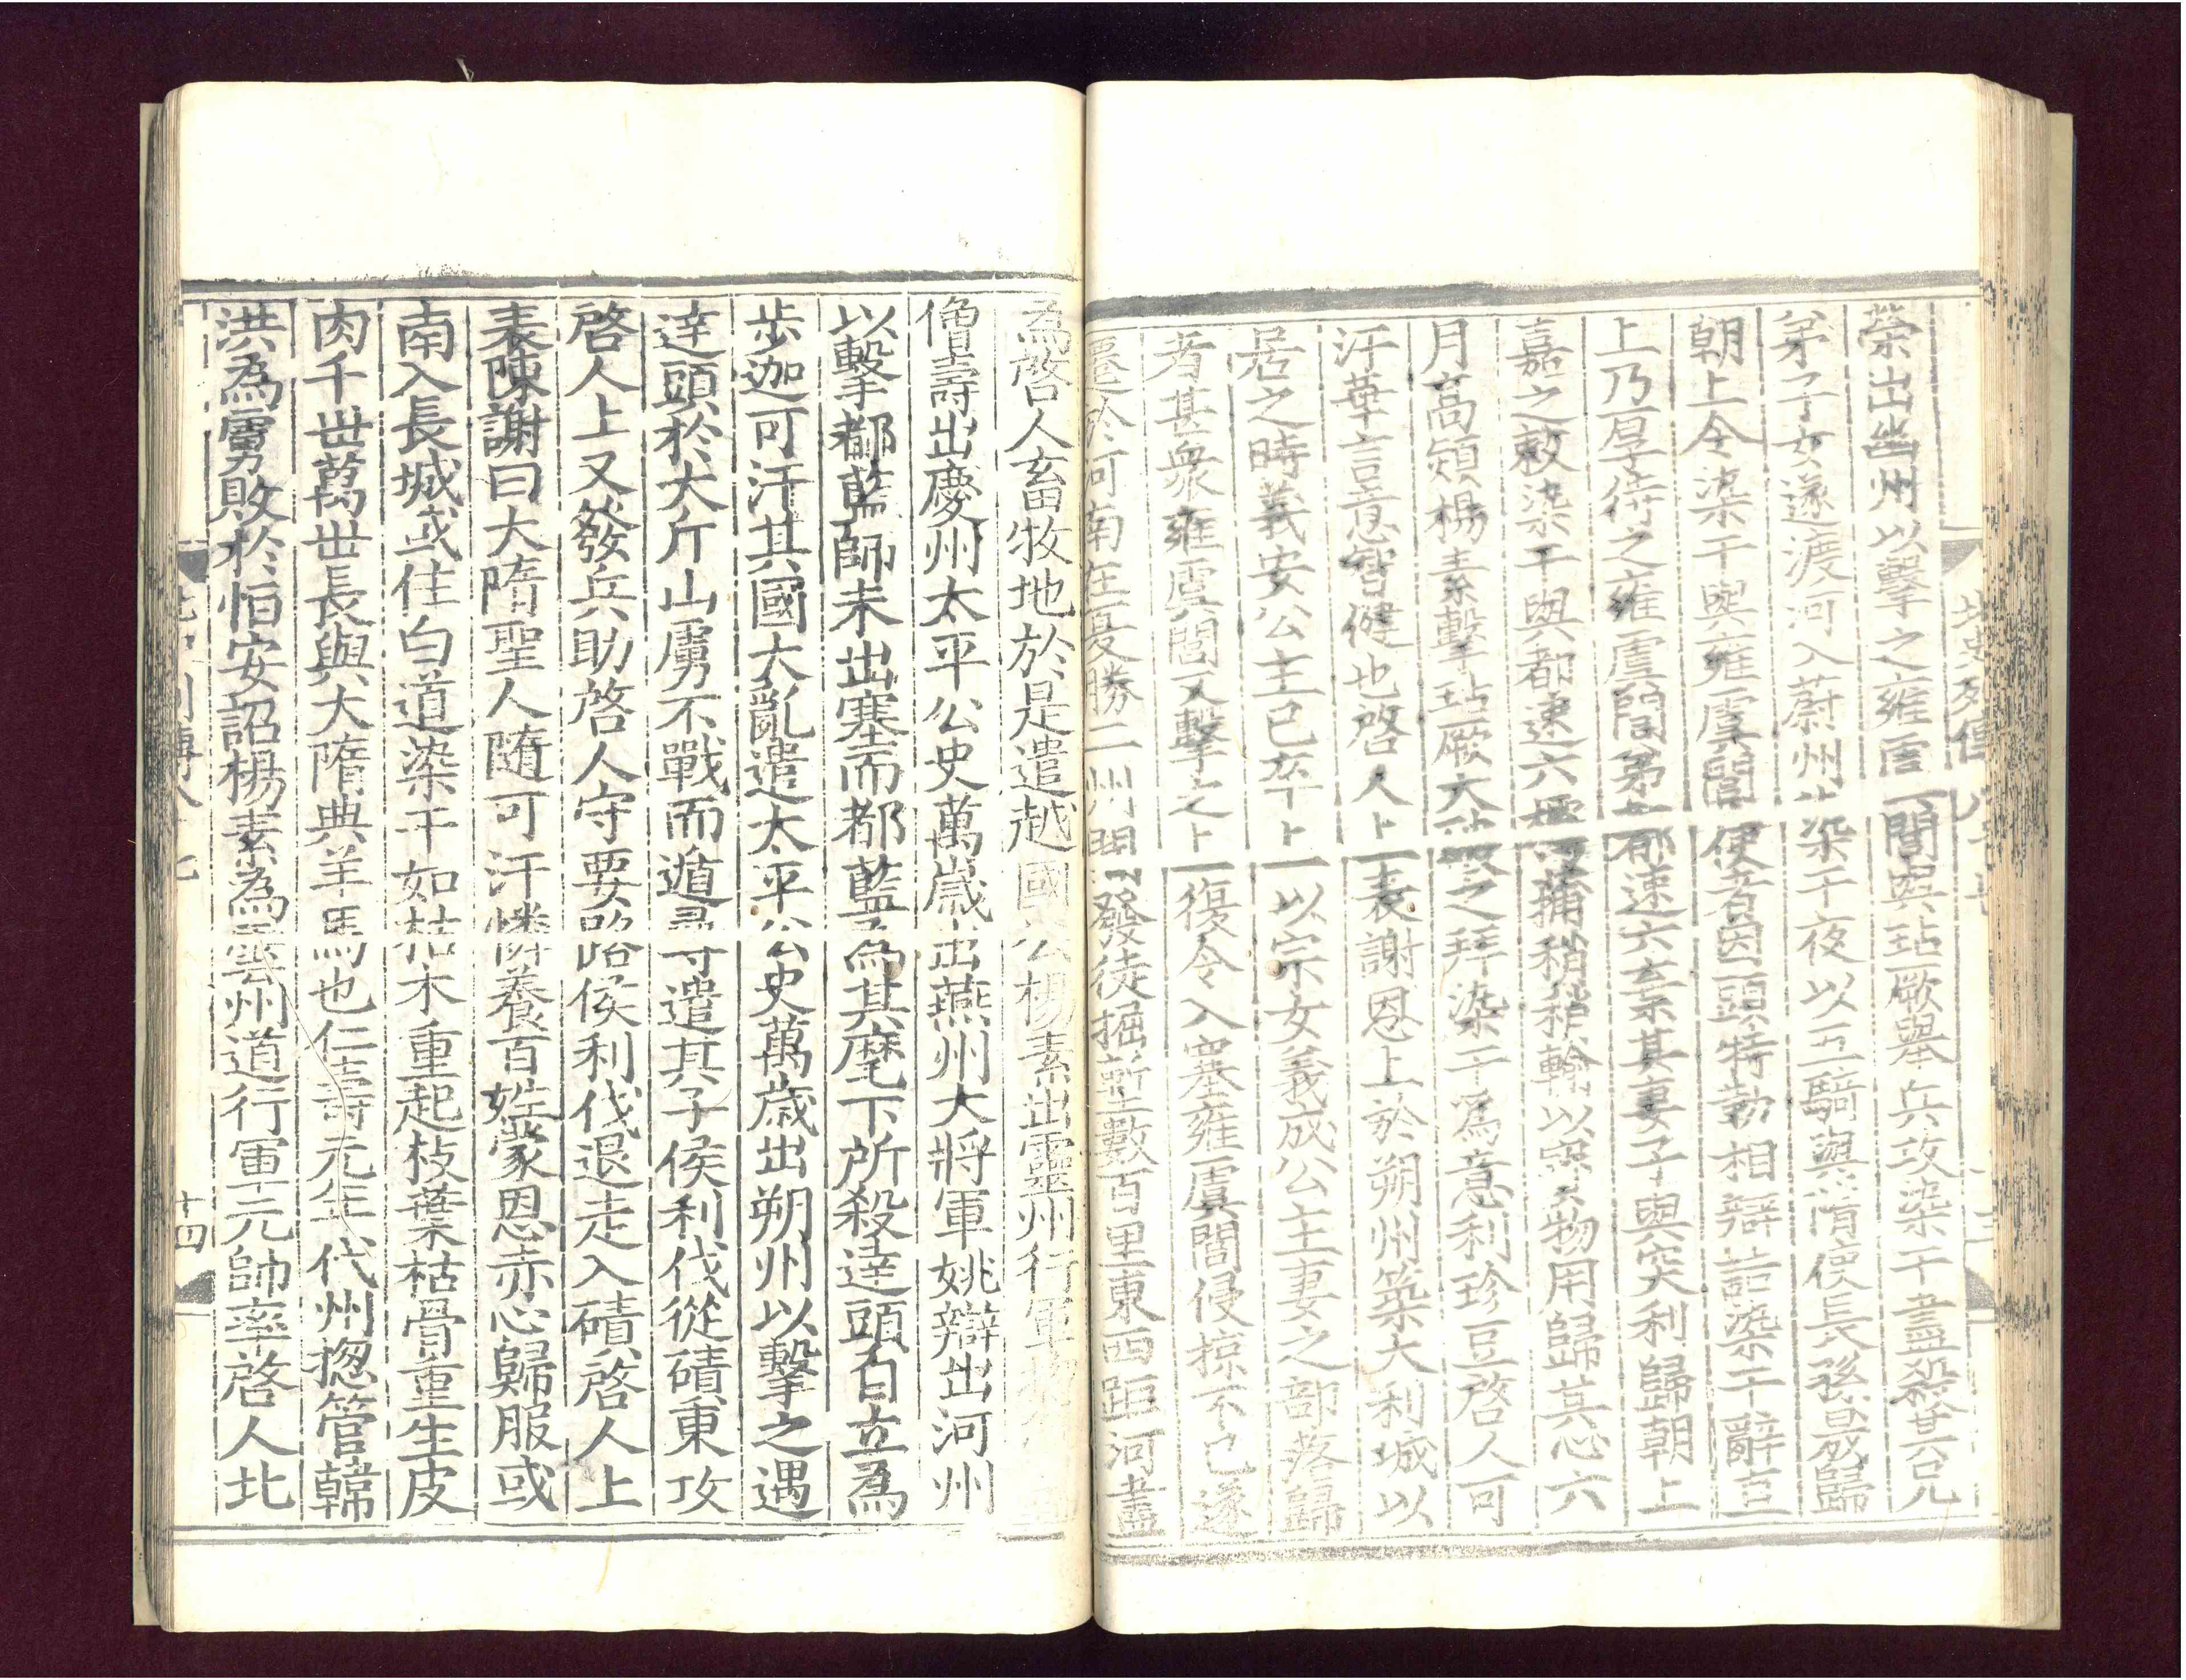 榮出幽州以擊之雍虞閭與玷厥舉兵攻染干盡殺其兄
弟子女遂渡河入蔚州染干夜以五騎與隋使長孫晟歸
朝上令染干與雍虞閭使者因頭特勤相辯詰染干辭直
上乃厚待之雍虞閭弟都速六棄其妻子與突利歸朝上
嘉之敕染干與都速六摴蒲稍稍輸以寶物用歸其心六
月高熲楊素擊玷厥大破之拜染干爲意利珍豆啓人可
汗華言意智健也啓人上表謝恩上於朔州築大利城以
居之時義安公主已卒上以宗女義成公主妻之部落歸
者甚衆雍虞閭又擊之上復令入塞雍虞閭侵掠不已遂
遷於河南在夏勝二州間發徒掘塹數百里東西距河盡
北史列傳
為啓人畜牧地於是遣越國公楊素出靈州行軍
僧壽出慶州太平公史萬歲出燕州大將軍姚辯出河州
以擊都藍師未出塞而都藍為其麾下所殺達頭自立為
步迦可汗其國大亂遣太平公史萬歲出朔州以擊之遇
達頭於大斤山虜不戰而遁尋遣其子侯利伐從磧東攻
啓人上又發兵助啓人守要路侯利伐退走入磧啓人上
表陳謝曰大隋聖人随可汗憐養百姓蒙恩赤心歸服或
南入長城或住白道染干如枯木重起枝葉枯骨重生皮
肉千世萬世長與大隋典羊馬也仁壽元年代州揔管韓
洪為虜敗於恒安詔楊素為雲州道行軍元帥率啓人北
十四